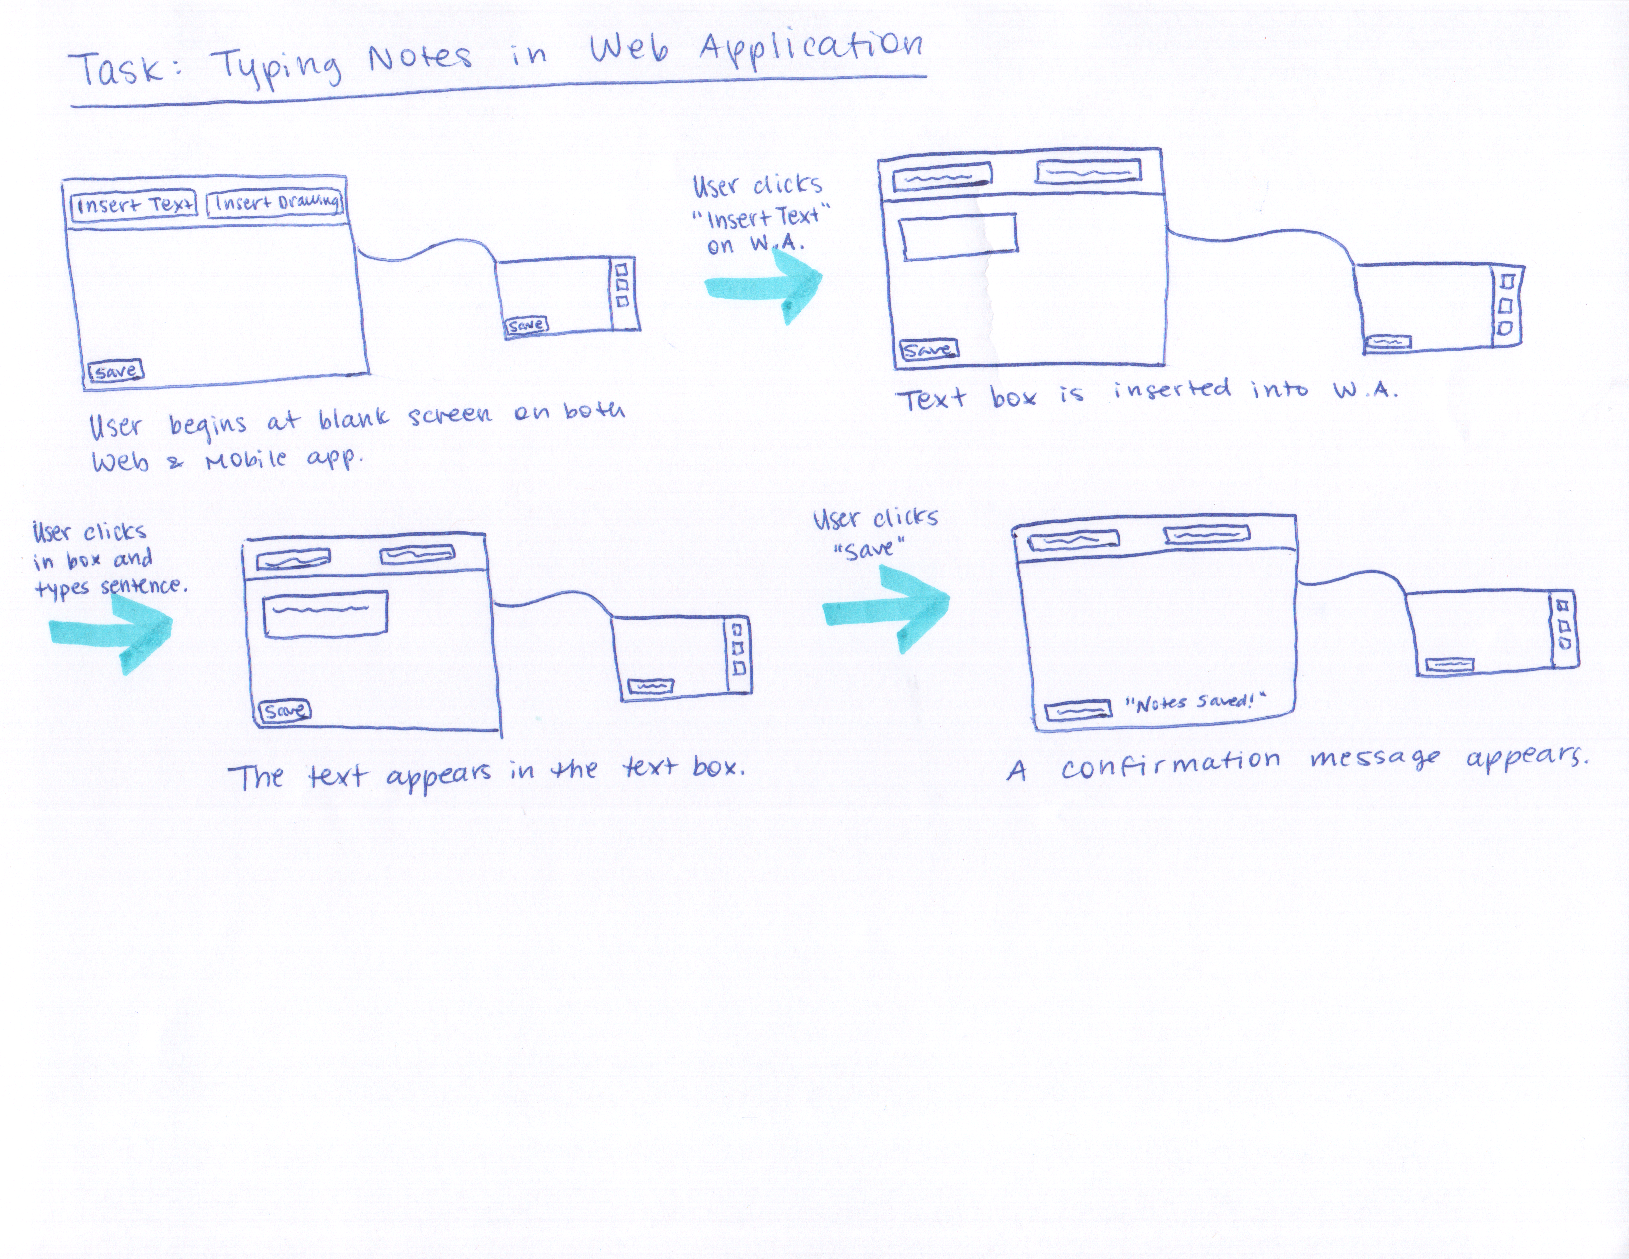 Task: Typing Notes in Web Application
Insert Text Insert Drawing
Save
Save
User begins at blank screen on both
Web & Mobile app.
User clicks
"Insert Text"
on W.A.
Save
Text box is inserted into W.A.
User clicks
in box and
types sentence.
Save
The text appears in the text box.
User clicks
"Save"
"Notes Saved!"
A confirmation message appears.